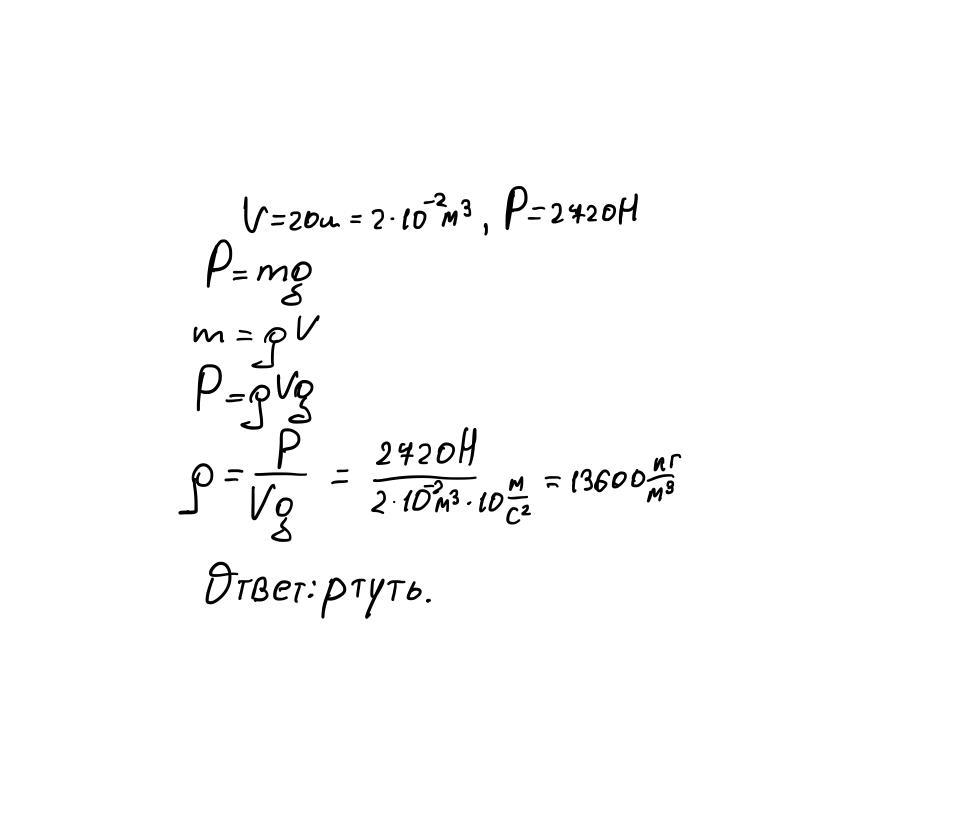 V = 20л = 2·10⁻² м³, P = 2720Н
P = mg
m = ρV
P = ρVg
ρ = P/Vg = 2720Н/2·10⁻² м³·10 м/с² = 13600 кг/м³
Ответ: ртуть.